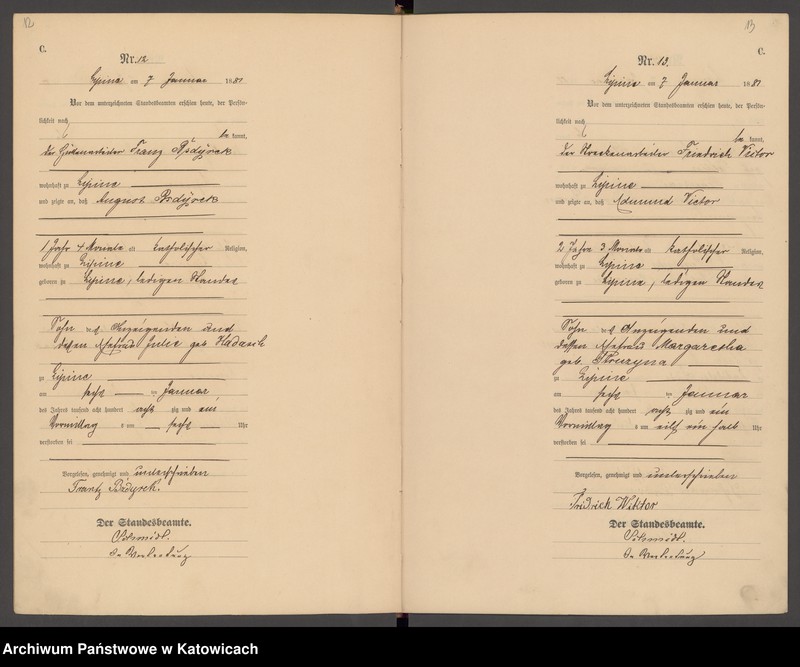 12
C.
Nr. 12
Lipine am 7 Januar 1881
Vor dem unterzeichneten Standesbeamten erschien heute, der Persön-
lichkeit nach
be kannt,
der Hüttenarbeiter Franz
wohnhaft zu Lipine
und zeigte an, daß August
1 Jahr 4 Monate alt katholischer Religion,
wohnhaft zu Lipine
geboren zu Lipine, ledigen Standes
Sohn des Anzeigenden und
dessen Ehefrau Julie geb.
zu Lipine
am sechs ten Januar
des Jahres tausend acht hundert acht zig und ein
Vormittag s um sechs Uhr
verstorben sei
Vorgelesen, genehmigt und unterschrieben
Frantz
Der Standesbeamte.
In Vertretung
13
C.
Nr. 13.
Lipine am 7 Januar 1881
Vor dem unterzeichneten Standesbeamten erschien heute, der Persön-
lichkeit nach
be kannt,
der Friedrich Victor
wohnhaft zu Lipine
und zeigte an, daß Edmund Victor
2 Jahre 3 Monate alt katholischer Religion,
wohnhaft zu Lipine
geboren zu Lipine, ledigen Standes
Sohn des Anzeigenden und
dessen Ehefrau Margaretha
geb. Skruzyna
zu Lipine
am sechs ten Januar
des Jahres tausend acht hundert acht zig und ein
Vormittag s um elf ein halb Uhr
verstorben sei
Vorgelesen, genehmigt und unterschrieben
Fridrich Wiktor
Der Standesbeamte.
In Vertretung
Archiwum Państwowe w Katowicach